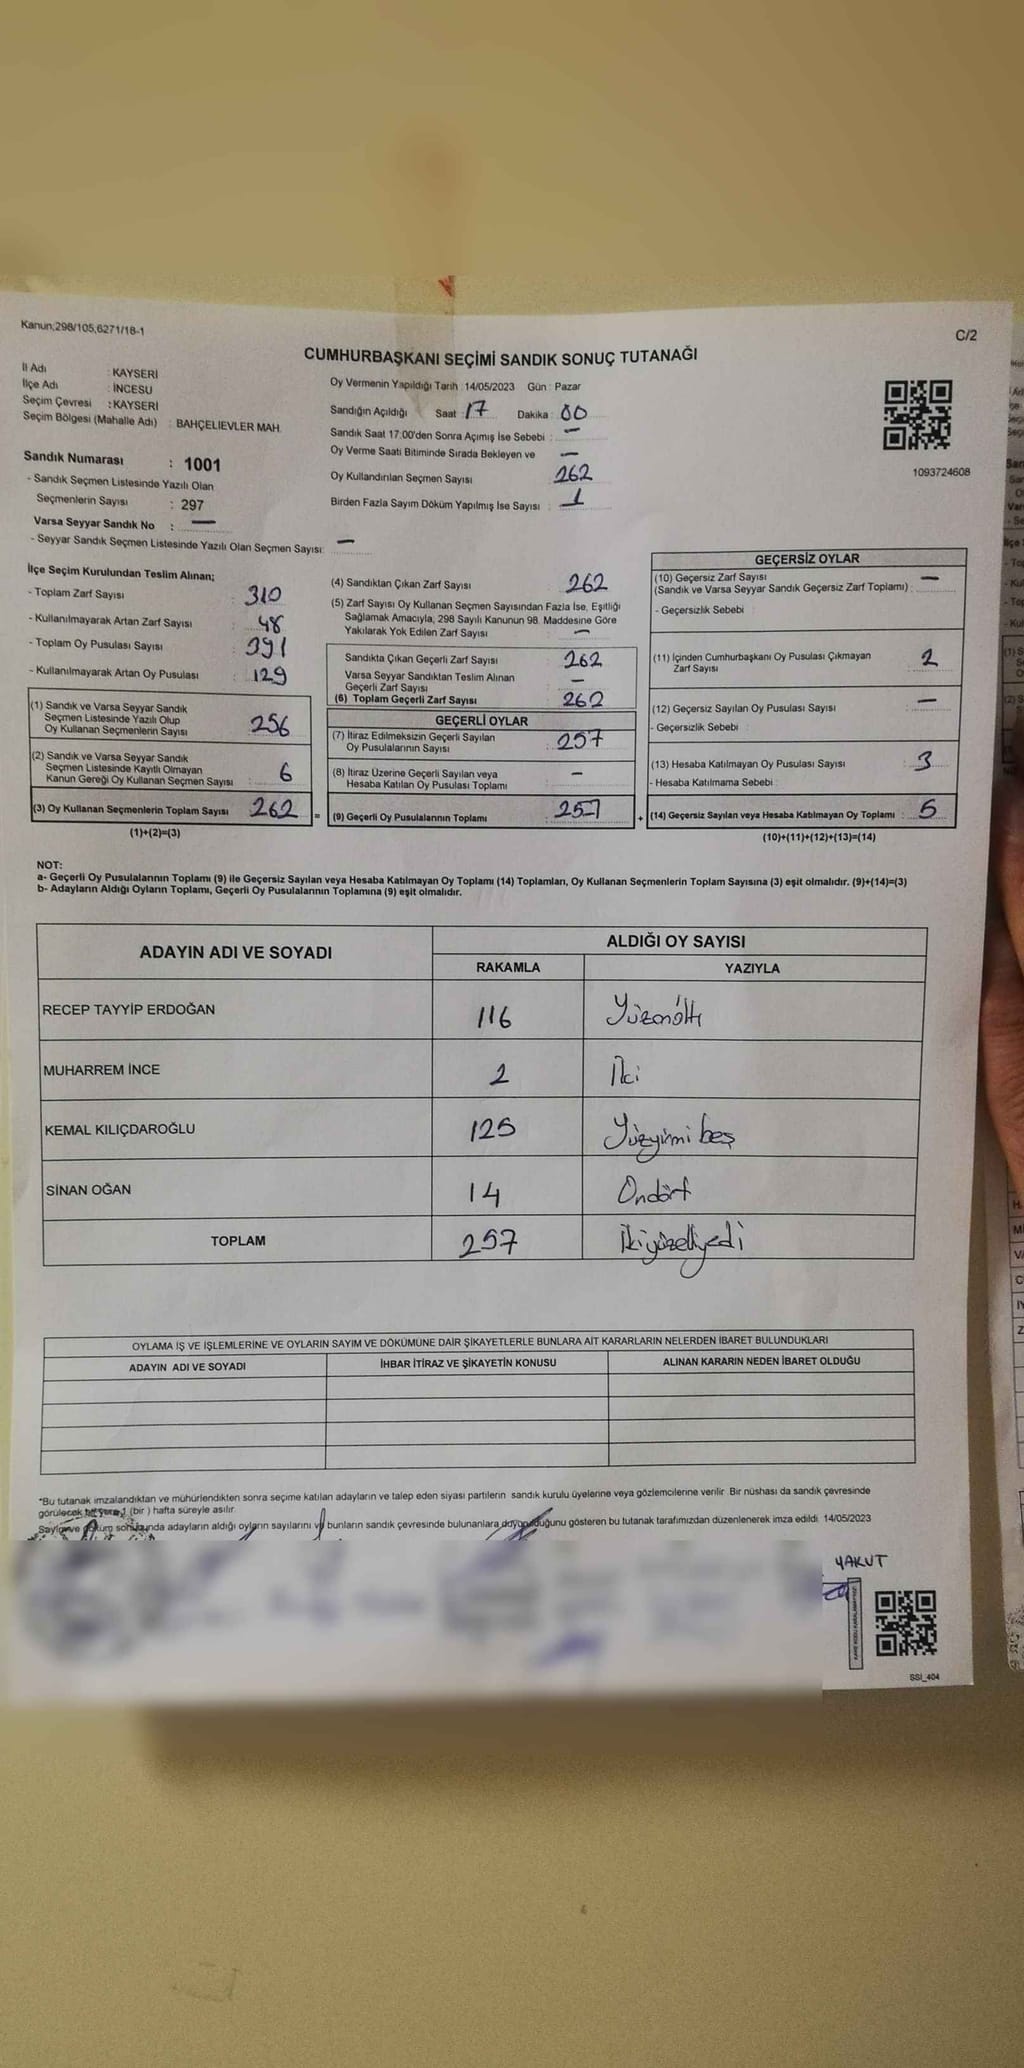 Kanun;298/105,6271/18-1
C/2
CUMHURBAŞKANI SEÇİMİ SANDIK SONUÇ TUTANAĞI
İl Adı : KAYSERİ
İlçe Adı : İNCESU
Seçim Çevresi : KAYSERİ
Seçim Bölgesi (Mahalle Adı) : BAHÇELİEVLER MAH.
Sandık Numarası : 1001
- Sandık Seçmen Listesinde Yazılı Olan
Seçmenlerin Sayısı : 297
Varsa Seyyar Sandık No : —
- Seyyar Sandık Seçmen Listesinde Yazılı Olan Seçmen Sayısı: —
Oy Vermenin Yapıldığı Tarih : 14/05/2023 Gün : Pazar
Sandığın Açıldığı Saat : 17 Dakika : 00
Sandık Saat 17:00'den Sonra Açımış İse Sebebi : —
Oy Verme Saati Bitiminde Sırada Bekleyen ve —
Oy Kullandırılan Seçmen Sayısı 262
Birden Fazla Sayım Döküm Yapılmış İse Sayısı : 1
1093724608
İlçe Seçim Kurulundan Teslim Alınan;
- Toplam Zarf Sayısı : 310
- Kullanılmayarak Artan Zarf Sayısı : 48
- Toplam Oy Pusulası Sayısı : 391
- Kullanılmayarak Artan Oy Pusulası : 129
(1) Sandık ve Varsa Seyyar Sandık
Seçmen Listesinde Yazılı Olup
Oy Kullanan Seçmenlerin Sayısı 256
(2) Sandık ve Varsa Seyyar Sandık
Seçmen Listesinde Kayıtlı Olmayan
Kanun Gereği Oy Kullanan Seçmen Sayısı 6
(3) Oy Kullanan Seçmenlerin Toplam Sayısı 262
(1)+(2)=(3)
(4) Sandıktan Çıkan Zarf Sayısı 262
(5) Zarf Sayısı Oy Kullanan Seçmen Sayısından Fazla İse, Eşitliği
Sağlamak Amacıyla, 298 Sayılı Kanunun 98. Maddesine Göre
Yakılarak Yok Edilen Zarf Sayısı —
Sandıkta Çıkan Geçerli Zarf Sayısı 262
Varsa Seyyar Sandıktan Teslim Alınan
Geçerli Zarf Sayısı —
(6) Toplam Geçerli Zarf Sayısı 262
GEÇERLİ OYLAR
(7) İtiraz Edilmeksizin Geçerli Sayılan
Oy Pusulalarının Sayısı 257
(8) İtiraz Üzerine Geçerli Sayılan veya
Hesaba Katılan Oy Pusulası Toplamı —
= (9) Geçerli Oy Pusulalarının Toplamı 257
GEÇERSİZ OYLAR
(10) Geçersiz Zarf Sayısı
(Sandık ve Varsa Seyyar Sandık Geçersiz Zarf Toplamı) : —
- Geçersizlik Sebebi :
(11) İçinden Cumhurbaşkanı Oy Pusulası Çıkmayan
Zarf Sayısı 2
(12) Geçersiz Sayılan Oy Pusulası Sayısı —
- Geçersizlik Sebebi :
(13) Hesaba Katılmayan Oy Pusulası Sayısı 3
- Hesaba Katılmama Sebebi :
+ (14) Geçersiz Sayılan veya Hesaba Katılmayan Oy Toplamı : 5
(10)+(11)+(12)+(13)=(14)
NOT:
a- Geçerli Oy Pusulalarının Toplamı (9) ile Geçersiz Sayılan veya Hesaba Katılmayan Oy Toplamı (14) Toplamları, Oy Kullanan Seçmenlerin Toplam Sayısına (3) eşit olmalıdır. (9)+(14)=(3)
b- Adayların Aldığı Oyların Toplamı, Geçerli Oy Pusulalarının Toplamına (9) eşit olmalıdır.
ADAYIN ADI VE SOYADI ALDIĞI OY SAYISI
RAKAMLA YAZIYLA
RECEP TAYYİP ERDOĞAN 116 Yüzonaltı
MUHARREM İNCE 2 İki
KEMAL KILIÇDAROĞLU 125 Yüzyirmi beş
SİNAN OĞAN 14 Ondört
TOPLAM 257 İkiyüzelliyedi
OYLAMA İŞ VE İŞLEMLERİNE VE OYLARIN SAYIM VE DÖKÜMÜNE DAİR ŞİKAYETLERLE BUNLARA AİT KARARLARIN NELERDEN İBARET BULUNDUKLARI
ADAYIN ADI VE SOYADI İHBAR İTİRAZ VE ŞİKAYETİN KONUSU ALINAN KARARIN NEDEN İBARET OLDUĞU
*Bu tutanak imzalandıktan ve mühürlendikten sonra seçime katılan adayların ve talep eden siyasi partilerin sandık kurulu üyelerine veya gözlemcilerine verilir. Bir nüshası da sandık çevresinde
görülecek bir yere 1 (bir ) hafta süreyle asılır.
Sayım ve döküm sonucunda adayların aldığı oyların sayılarını ve bunların sandık çevresinde bulunanlara duyurulduğunu gösteren bu tutanak tarafımızdan düzenlenerek imza edildi. 14/05/2023
YAKUT
SSI_404